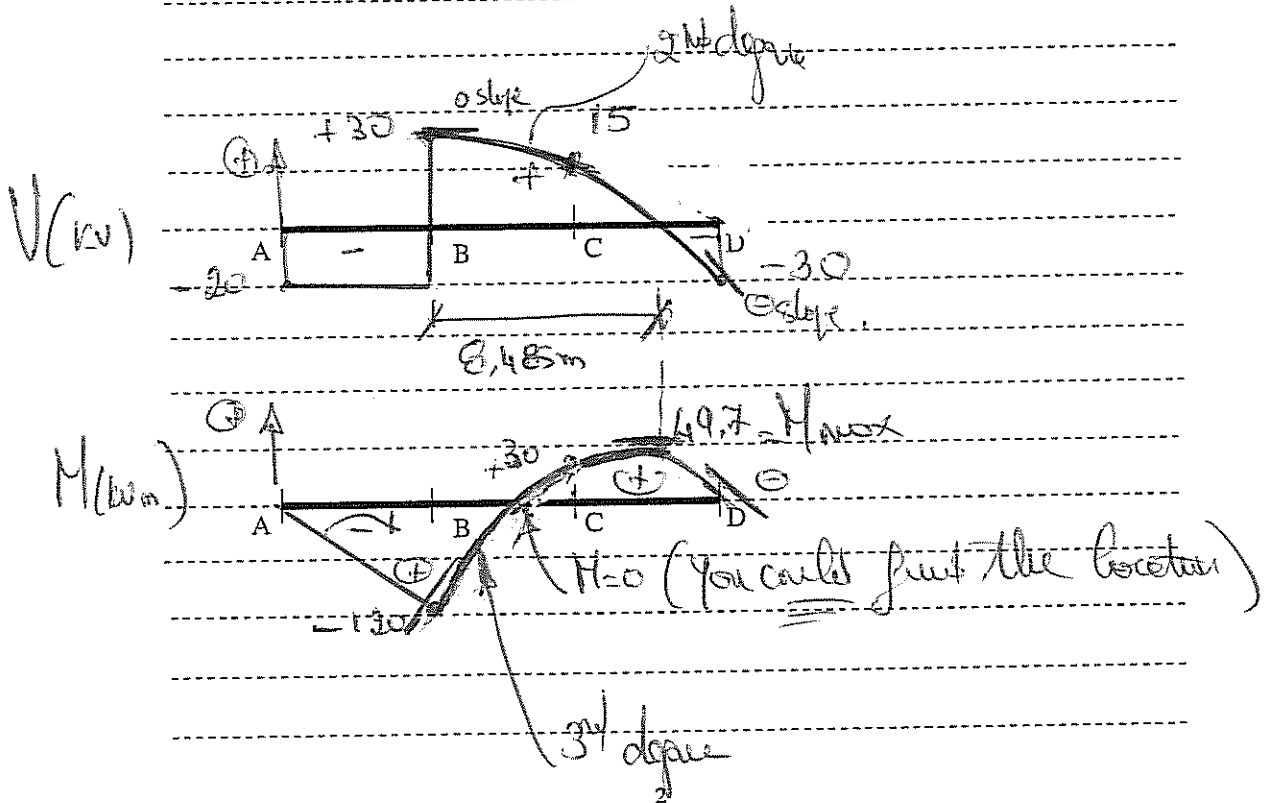 2nd degree
0 slope
+30
15
⊕
+
V(kN)
A
-
B
C
-
D
-20
-30
⊖ slope.
8,485m
⊕
49.7=Mmax
M(kNm)
+30
⊕
⊖
A
-
B
C
D
⊕
M=0 (You could find the location)
-120
3rd degree
2